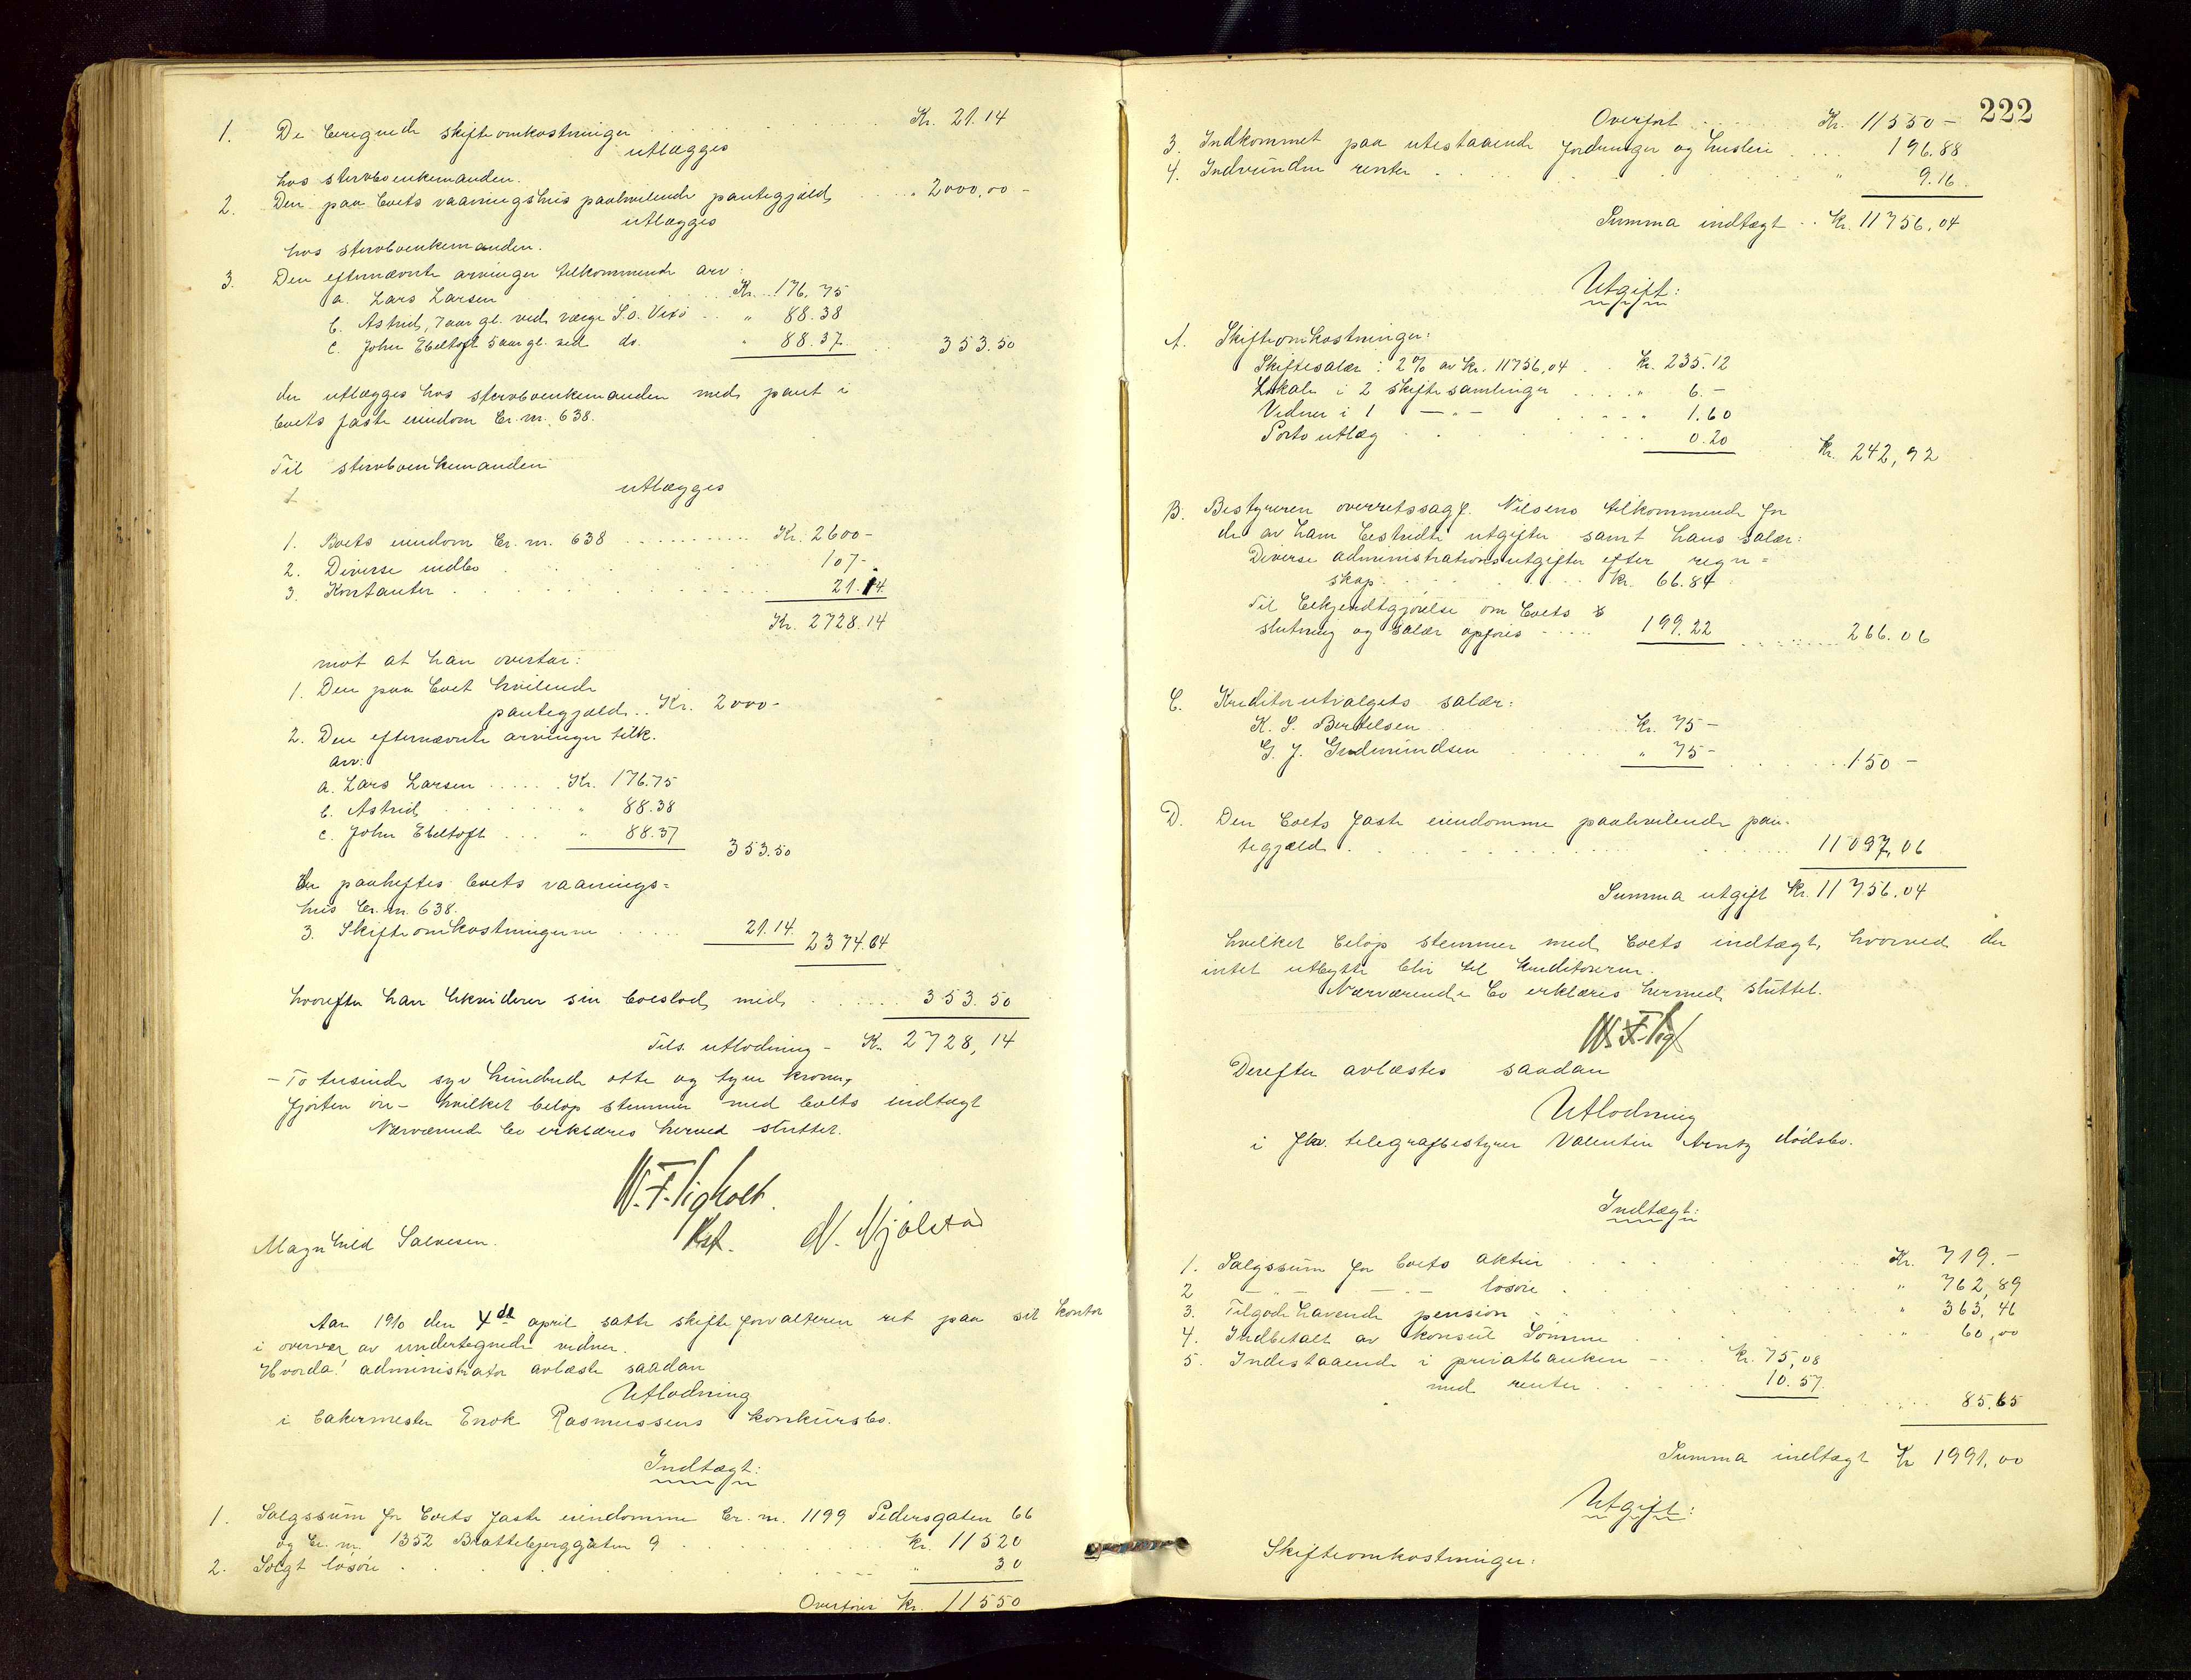 1. De beregnede skifteomkostninger Kr. 21.14
utlægges
hos stervboenkemanden.
2. Den paa boets vaaningshus paahvilende pantegjæld " 2000,00 -
utlægges
hos stervboenkemanden.
3. Den efternævnte arvinger tilkommende arv:
a. Lars Larsen Kr. 176,75
b. Astrid, 7 aar gl. ved værge S. o. Vixö " 88.38
c. John Ebeltoft 5 aar gl. ved do. " 88.37 353.50
der utlægges hos stervboenkemanden med pant i
boets faste eiendom br. nr. 638.
Til stervboenkemanden
utlægges
1. Boets eiendom br. nr. 638 Kr. 2600 -
2. Diverse indbo 107 -
3. Kontanter 21.14
Kr. 2728.14
mot at han overtar:
1. Den paa boet hvilende
pantegjæld Kr. 2000 -
2. Den efternævnte arvinger tilk.
arv:
a. Lars Larsen Kr. 176.75
b. Astrid " 88.38
c. John Ebeltoft " 88.37
353.50
der paaheftes boets vaanings=
hus br. nr. 638.
3. Skifteomkostningerne 21.14 2374.64
hvorefter han likviderer sin boeslod med 353.50
Tils. utlodning - Kr. 2728,14
- To tusinde syv hundrede otte og tyve kroner,
fjorten øre - hvilket beløp stemmer med boets indtægt
Nærværende bo erklæres herved sluttet.
W. F. Sigholt
Kst.
N. Mjölstad
Magnhild Salvesen.
Aar 1910 den 4de april satte skifteforvalteren ret paa sit kontor
i overvær av undertegnede vidner.
Hvorda! administrator avlæste saadan
Utlodning
i bakermester Enok Rasmussens konkursbo.
Indtægt:
1. Salgssum for boets faste eiendomme br. nr. 1199 Pedersgaten 66
og br. nr. 1352 Brattebjerggaten 9 Kr. 11520
2. Solgt løsøre " 30
Overføres Kr. 11550
222
Overført Kr. 11550 -
3. Indkommet paa utestaaende fordringer og husleie 196.88
4. Indvundne renter " 9.16
Summa indtægt Kr. 11756,04
Utgift:
A. Skifteomkostninger:
Skiftesalær: 2% av Kr. 11756,04 Kr. 235.12
Lokale i 2 skiftesamlinger " 6. -
Vidner i 1 — " — " 1.60
Porto utlæg 0.20 Kr. 242,92
B. Bestyreren overretssagf. Nilsens tilkommende for
de av ham bestridte utgifter samt hans salær:
Diverse administrationsutgifter efter regn=
skap Kr. 66.84
Til bekjendtgjørelse om boets
slutning og salær opføres 199.22 266.06
C. Kreditorutvalgets salær:
K. S. Bertelsen Kr. 75 -
G. J. Gudmundsen " 75 - 150 -
D. Den boets faste eiendomme paahvilende pan-
tegjæld 11097,06
Summa utgift Kr. 11756.04
hvilket beløp stemmer med boets indtægt, hvorved der
intet utbytte blir til kreditorerne.
Nærværende bo erklæres hermed sluttet.
W. F. Sigh
Derefter avlæstes saadan
Utlodning
i fhv. telegrafbestyrer Valentin Arntz dødsbo.
Indtægt:
1. Salgssum for boets aktier Kr. 719. -
2 — " — — " — løsøre " 762,89
3. Tilgodehavende pension " 363,46
4. Indbetalt av konsul Sømme " 60,00
5. Indestaaende i privatbanken - Kr. 75,08
med renter 10.57
85,65
Summa indtægt Kr 1991,00
Utgift:
Skifteomkostninger: